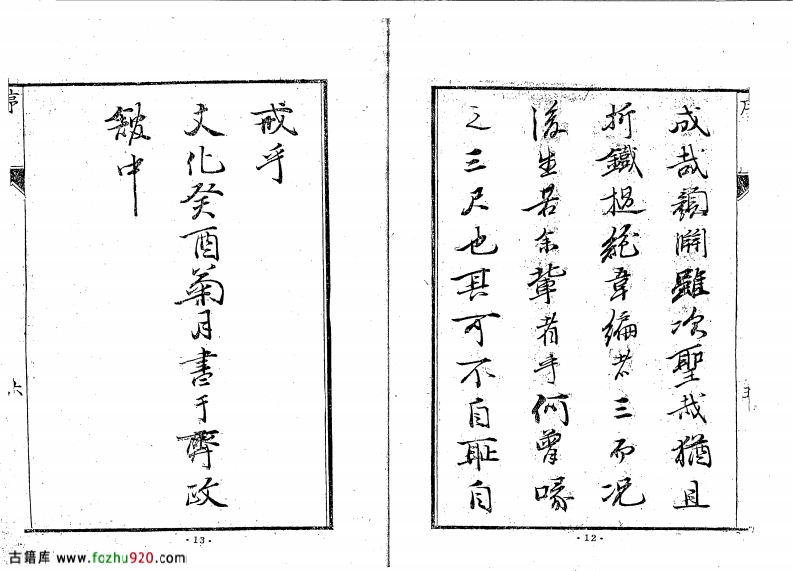 成哉顏淵雖次聖哉猶且
折鐵絕韋編者三而况
後生若余輩者乎何曾喙
之三尺也其可不自耻自
- 12 -
戒乎
文化癸酉菊月書于齊政
館中
序
六
- 13 -
古籍库 www.fozhu920.com